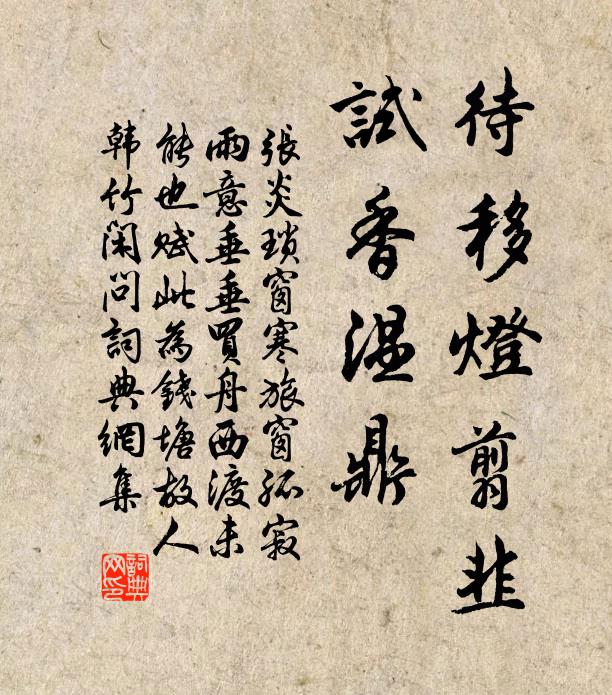 待移燈翦韭
試香溫鼎
張炎瑣窗寒旅窗孤寂
雨意垂垂買舟西渡未
能也賦此為錢塘故人
韩竹閑問詞典網集
詞典网印